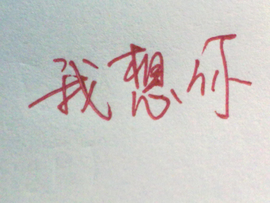 我想你